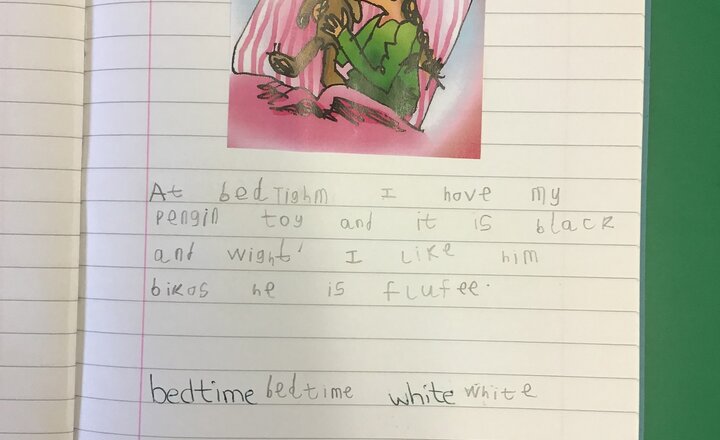 At bedTighm I hove my
pengin toy and it is black
and wight' I Like him
bikos he is flufee.
bedtime bedtime white white